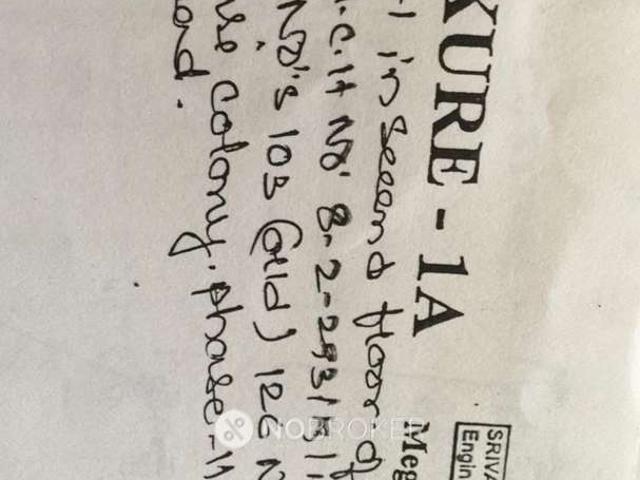 XURE - 1A
-1 in second floor of
.C.H NO' 8-2-293/
NO's 103 (old) 12C N
use colony. phase-11
oad.
Meg
SRIVA
Engin
NOBROKER